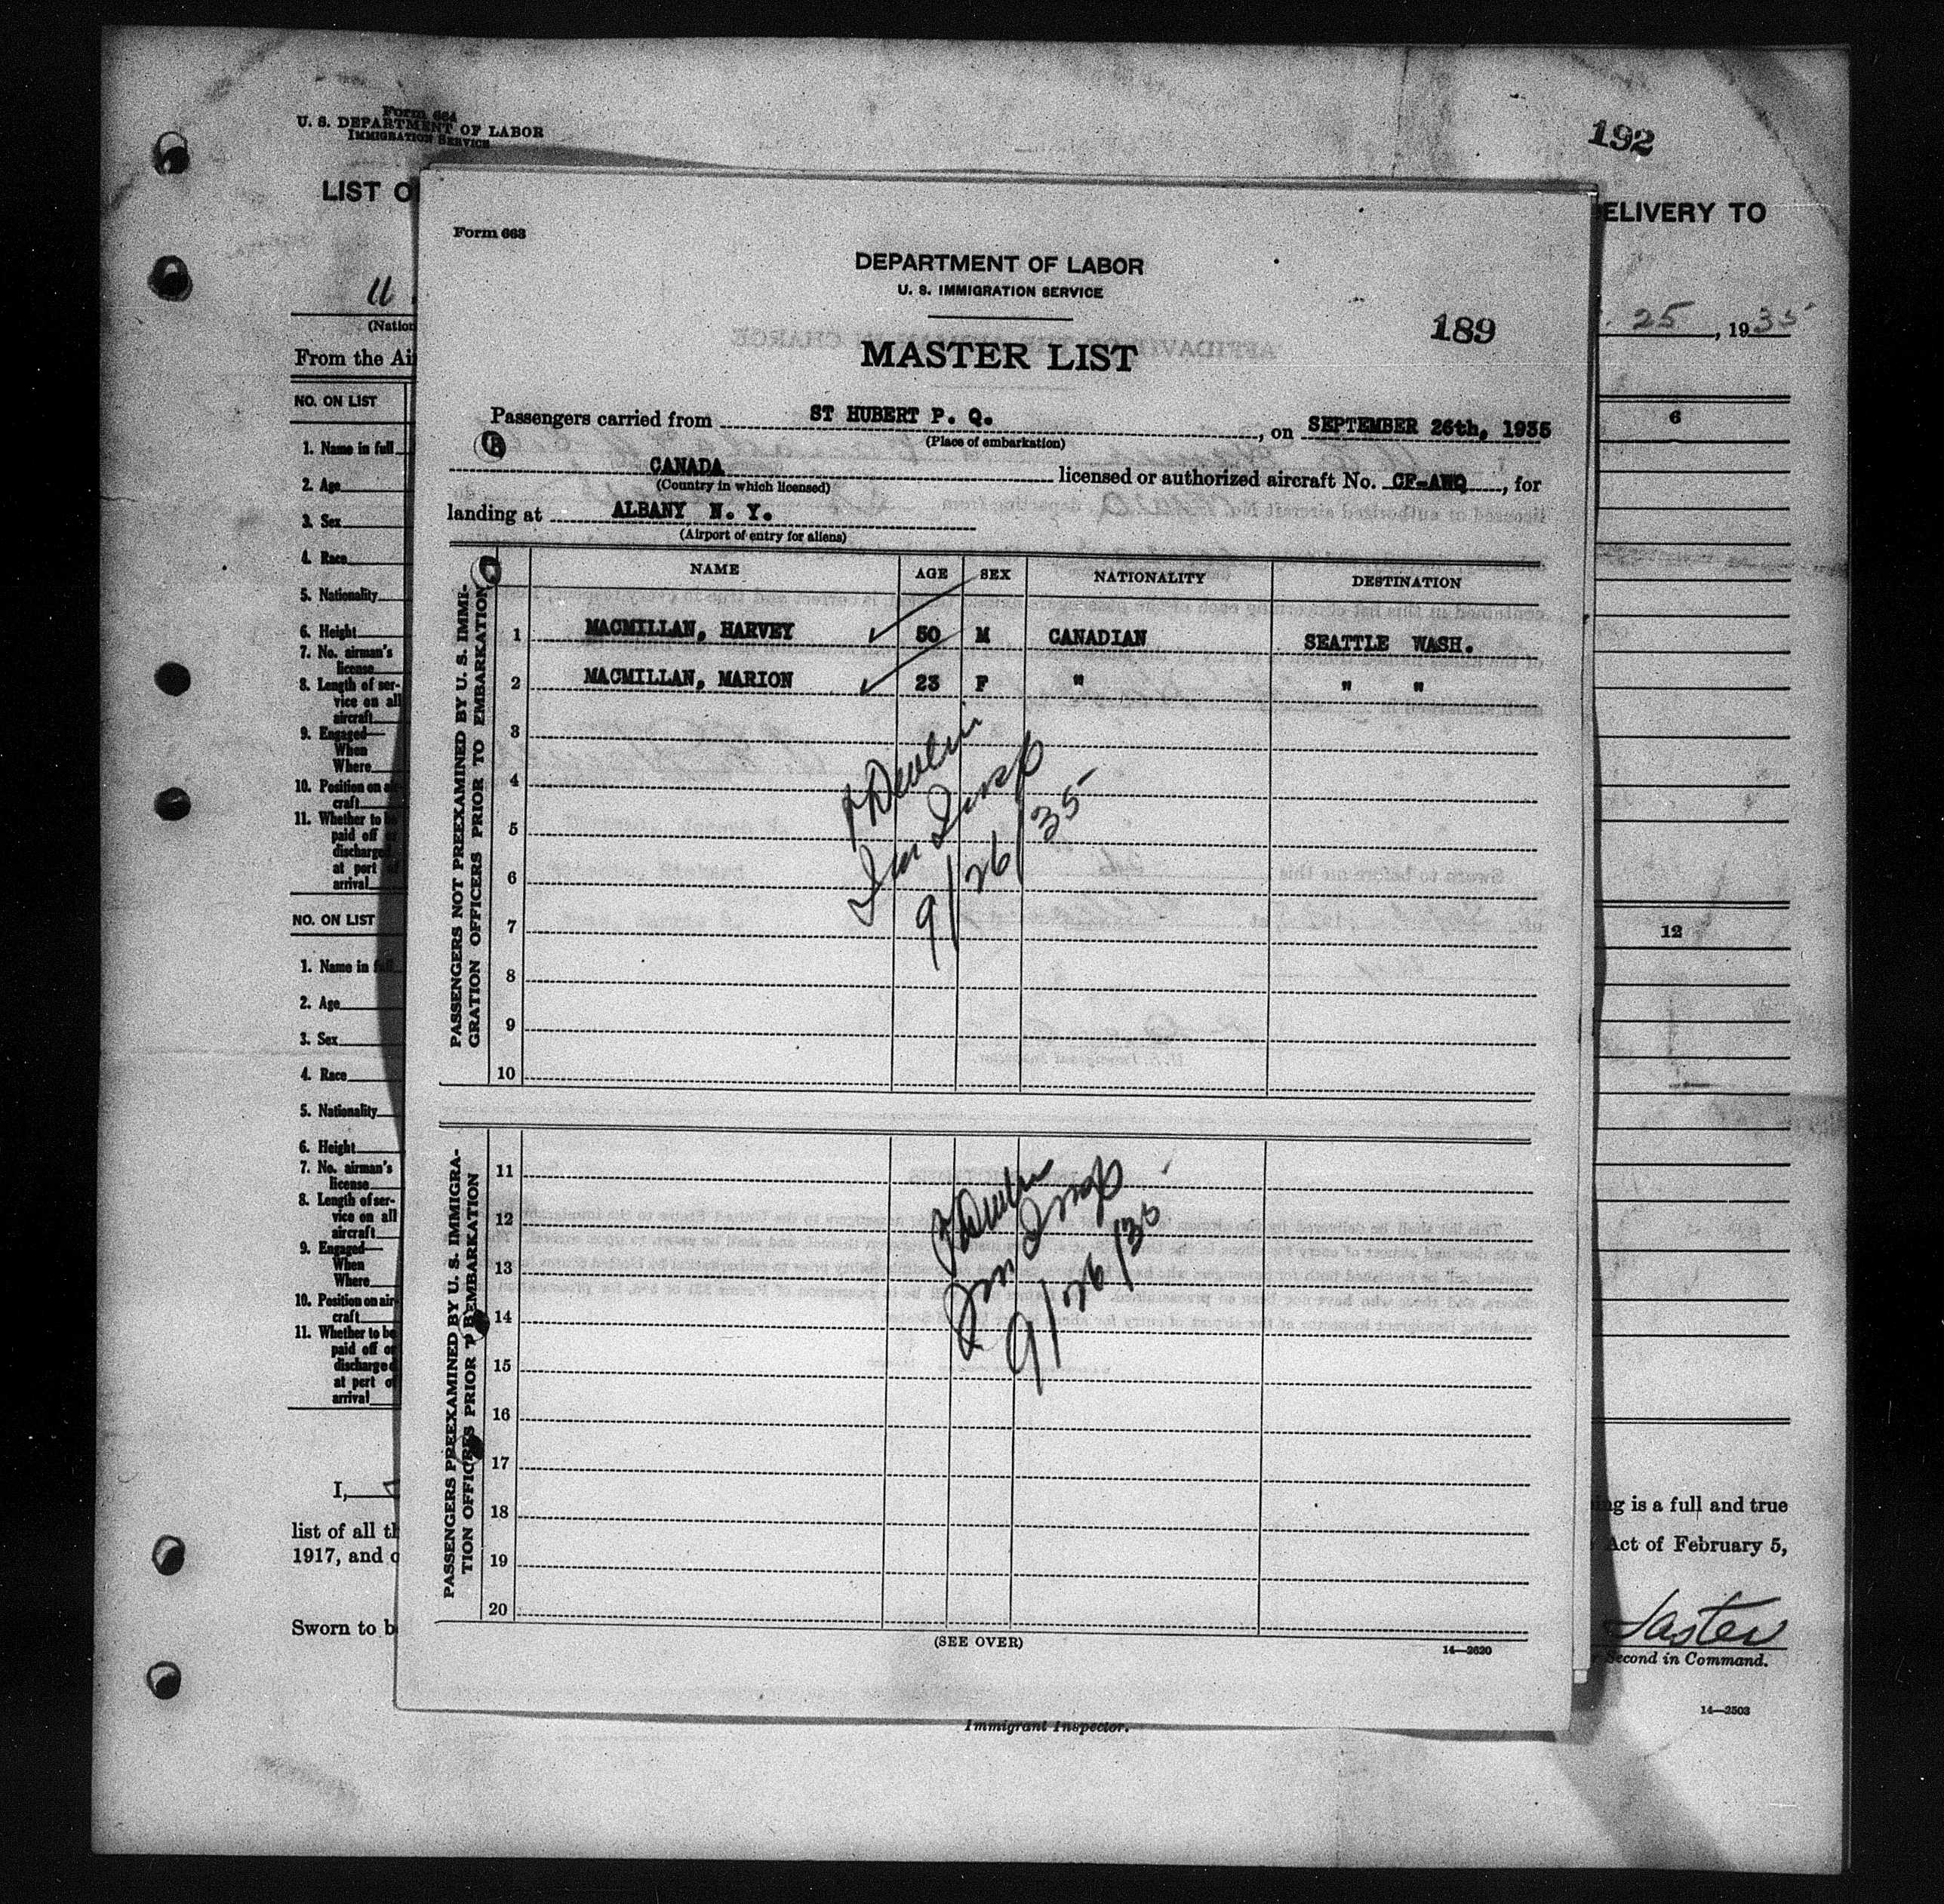 Form 664
U. S. DEPARTMENT OF LABOR
IMMIGRATION SERVICE
192
LIST O
ELIVERY TO
25, 1935
(Nation
From the Ai
NO. ON LIST
6
1. Name in full
2. Age
3. Sex
4. Race
5. Nationality
6. Height
7. No. airman's
license
8. Length of ser-
vice on all
aircraft
9. Engaged—
When
Where
10. Position on air-
craft
11. Whether to be
paid off or
discharged
at port of
arrival
NO. ON LIST
12
1. Name in full
2. Age
3. Sex
4. Race
5. Nationality
6. Height
7. No. airman's
license
8. Length of ser-
vice on all
aircraft
9. Engaged—
When
Where
10. Position on air-
craft
11. Whether to be
paid off or
discharged
at port of
arrival
I,
ing is a full and true
list of all th
Act of February 5,
1917, and o
Sworn to b
Second in Command.
14—2503
Immigrant Inspector.
Form 663
DEPARTMENT OF LABOR
U. S. IMMIGRATION SERVICE
189
MASTER LIST
Passengers carried from ST HUBERT P. Q., on SEPTEMBER 26th, 1935
(Place of embarkation)
CANADA licensed or authorized aircraft No. CF-AWQ, for
(Country in which licensed)
landing at ALBANY N. Y.
(Airport of entry for aliens)
PASSENGERS NOT PREEXAMINED BY U. S. IMMI-
GRATION OFFICERS PRIOR TO EMBARKATION
NAME AGE SEX NATIONALITY DESTINATION
1 MACMILLAN, HARVEY 50 M CANADIAN SEATTLE WASH.
2 MACMILLAN, MARION 23 F " " "
3
4
5
6
7
8
9
10
Devlin
Imm Insp
9/26/35
PASSENGERS PREEXAMINED BY U. S. IMMIGRA-
TION OFFICERS PRIOR TO EMBARKATION
11
12
13
14
15
16
17
18
19
20
Devlin
Imm Insp
9/26/35
(SEE OVER)
14—2620